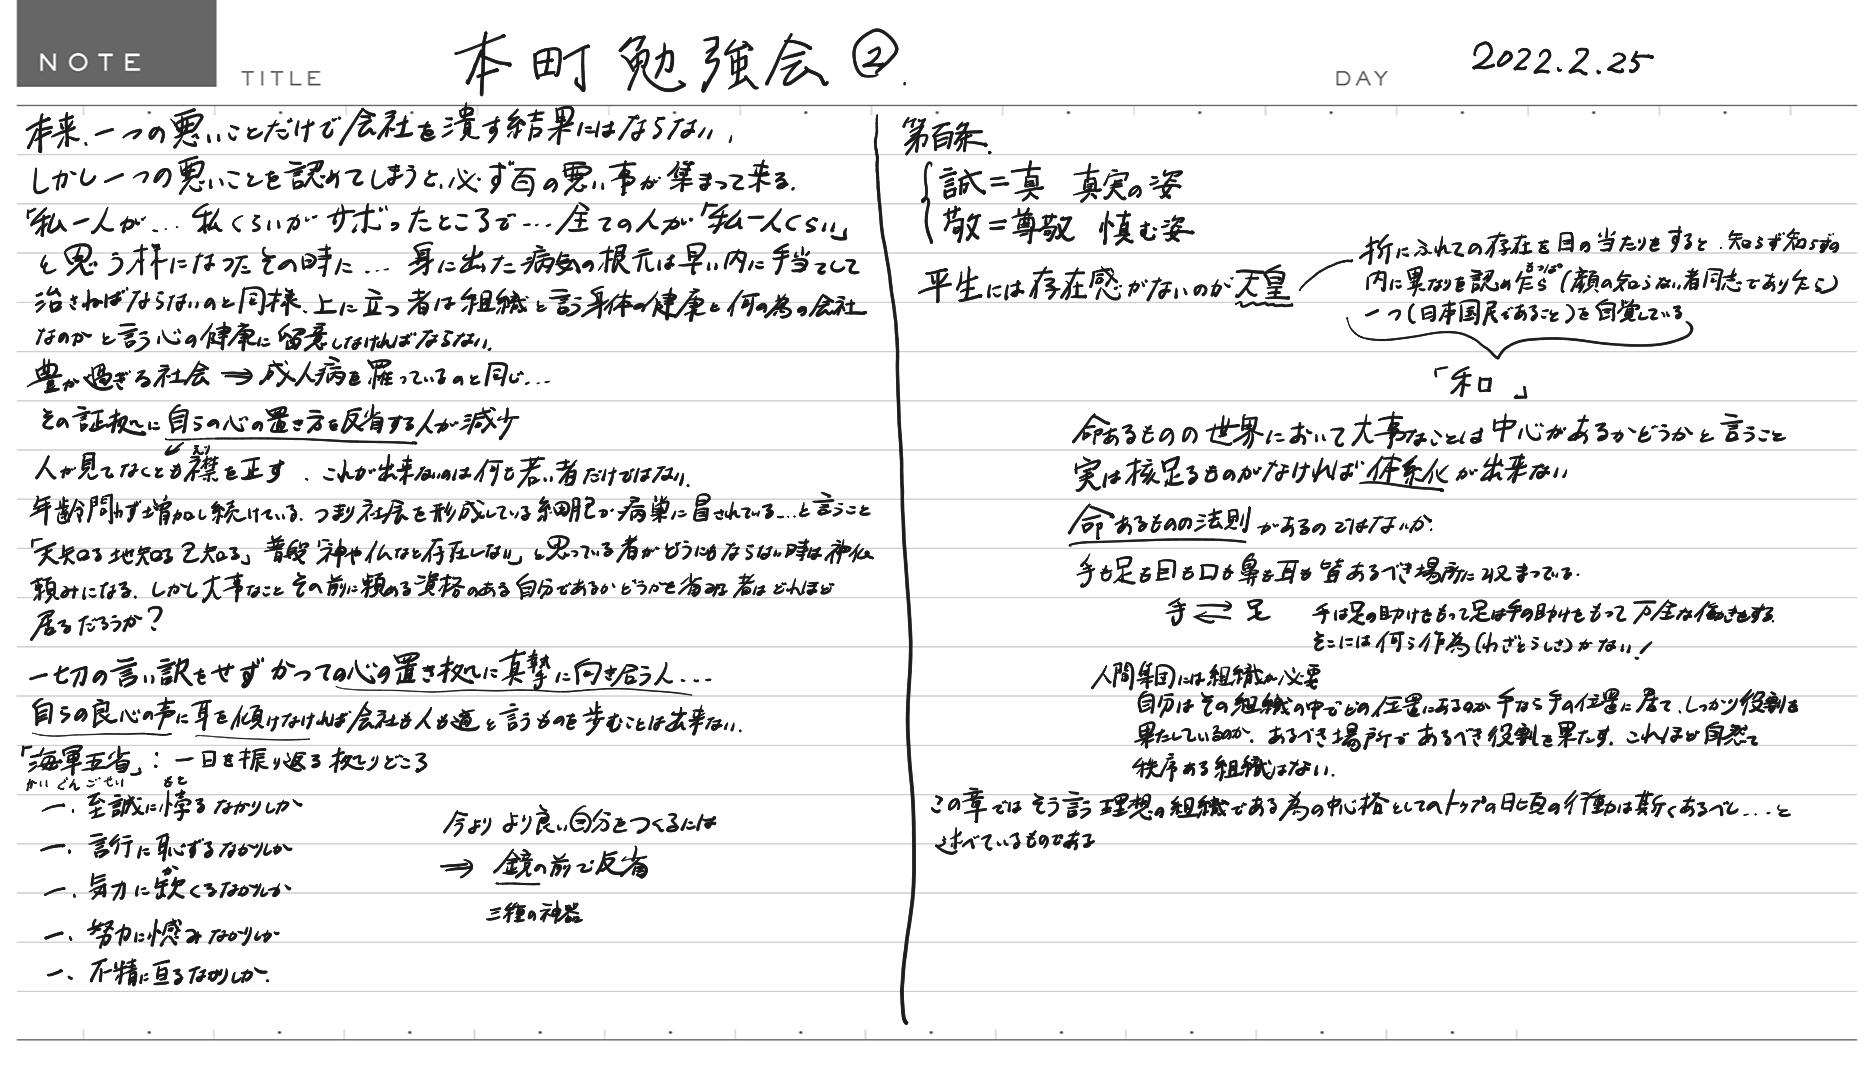 NOTE
TITLE 本町勉強会②.
DAY 2022.2.25
本来、一つの悪いことだけで会社を潰す結果にはならない、
しかし一つの悪いことを認めてしまうと、必ず百の悪い事が集まって来る.
「私一人が… 私くらいがサボったところで… 全ての人が「私一人くらい」
と思う様になったその時に… 身に出た病気の根元は早い内に手当てして
治さねばならないのと同様、上に立つ者は組織と言う身体の健康と何の為の会社
なのかと言う心の健康に留意しなければならない.
豊か過ぎる社会 ⇒ 成人病を罹っているのと同じ…
その証拠に自らの心の置き方を反省する人が減少
えり
人が見てなくとも襟を正す、これが出来ないのは何も若い者だけではない.
年齢問わず増加し続けている. つまり社会を形成している細胞が病巣に冒されている…と言うこと
「天知る 地知る 己知る」 普段「神や仏など存在しない」と思っている者がどうにもならない時は神仏
頼みになる. しかし大事なこと その前に頼める資格のある自分であるかどうかを省みる者はどれほど
居るだろうか?
一切の言い訳をせず かつての心の置き拠に真摯に向き合う人…
自らの良心の声に耳を傾けなければ会社も人も道と言うものを歩むことは出来ない.
「海軍五省」: 一日を振り返る拠りどころ
かいぐんごせい もと
一、至誠に悖るなかりしか
一、言行に恥ずるなかりしか
か
一、気力に欠くるなかりしか
一、努力に憾みなかりしか
一、不精に亘るなかりしか.
今より より良い自分をつくるには
⇒ 鏡の前で反省
三種の神器
第百条.
誠=真 真実の姿
敬=尊敬 慎む姿
平生には存在感がないのが天皇
折にふれての存在を目の当たりをすると、知らず知らずの
もっぱ
内に異なりを認めたら(顔の知らない者同志でありたら)
一つ(日本国民であること)を自覚している
「和 」
命あるものの世界において大事なことは中心があるかどうかと言うこと
実は核足るものがなければ体系化が出来ない
命あるものの法則があるのではないか.
手も足も目も口も鼻も耳も皆あるべき場所に収まっている.
手 ⇄ 足 手は足の助けをもって足は手の助けをもって万全な働きをする.
そこには何ら作為(わざとらしさ)がない!
人間集団には組織が必要
自分はその組織の中でどの位置にあるのか 手なら手の位置に居て、しっかり役割を
果たしているのか. あるべき場所であるべき役割を果たす. これほど自然で
秩序ある組織はない.
この章では そう言う理想の組織である為の中心格としてのトップの日頃の行動は斯くあるべし…と
述べているものである